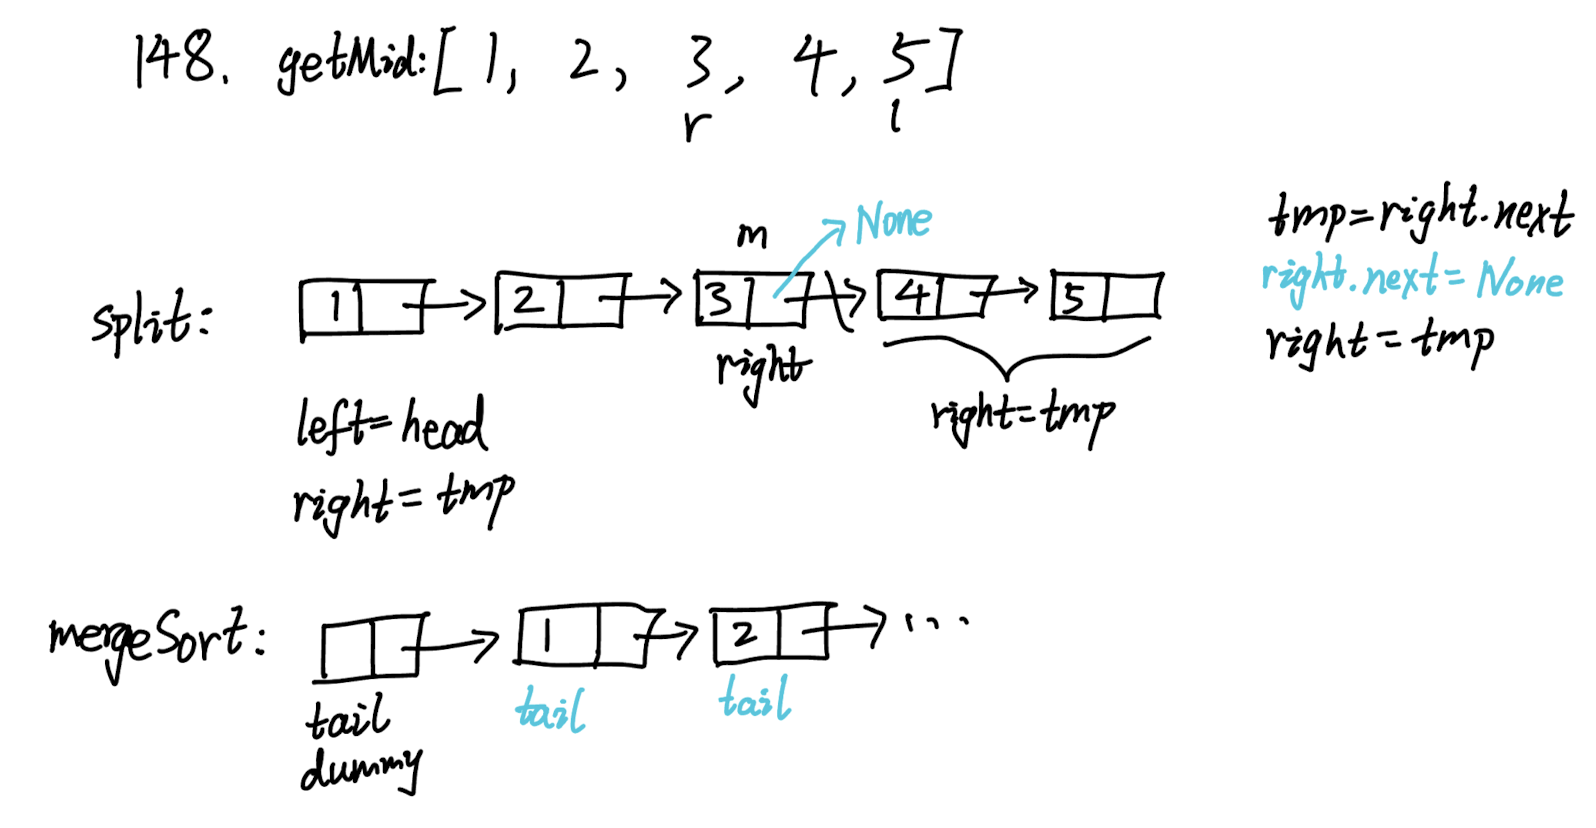 148. getMid: [ 1, 2, 3, 4, 5 ]
r l
m None
split: 1 2 3 4 5
right
right=tmp
left=head
right=tmp
tmp=right.next
right.next=None
right=tmp
mergeSort: 1 2 ...
tail tail tail
dummy